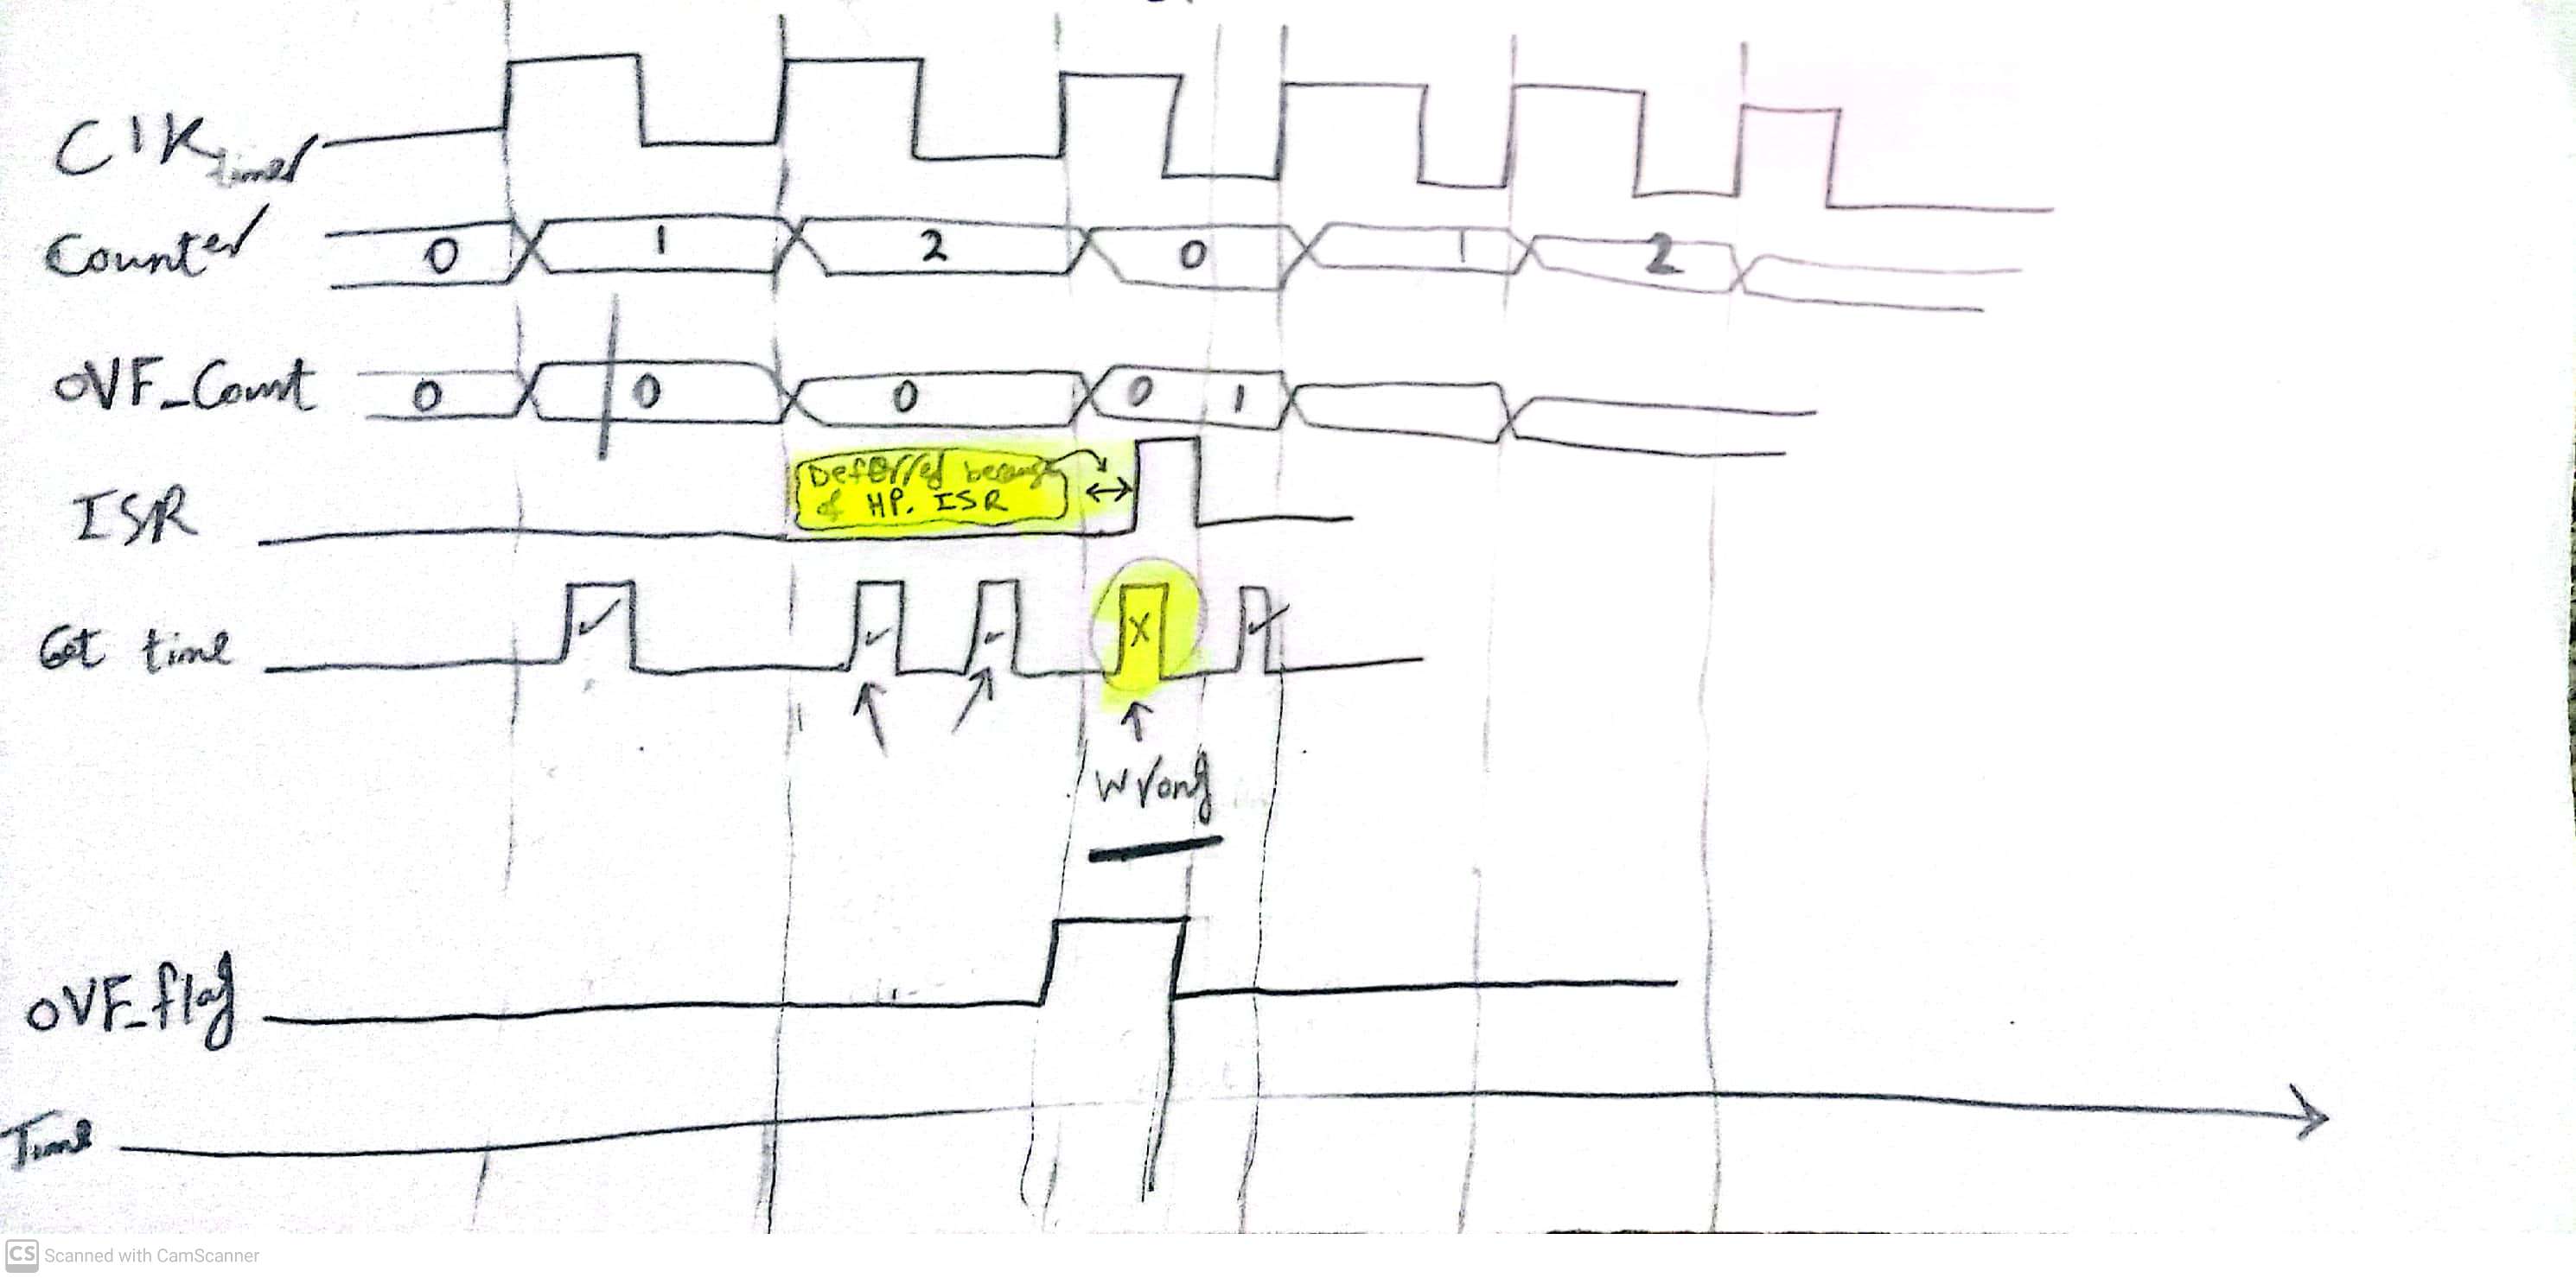 ClK timer
Counter 0 1 2 0 1 2
OVF_Count 0 0 0 0 1
Deferred because
of HP. ISR
ISR
Get time ✓ ✓ ✓ X ✓
Wrong
OVF_flag
Time
CS Scanned with CamScanner